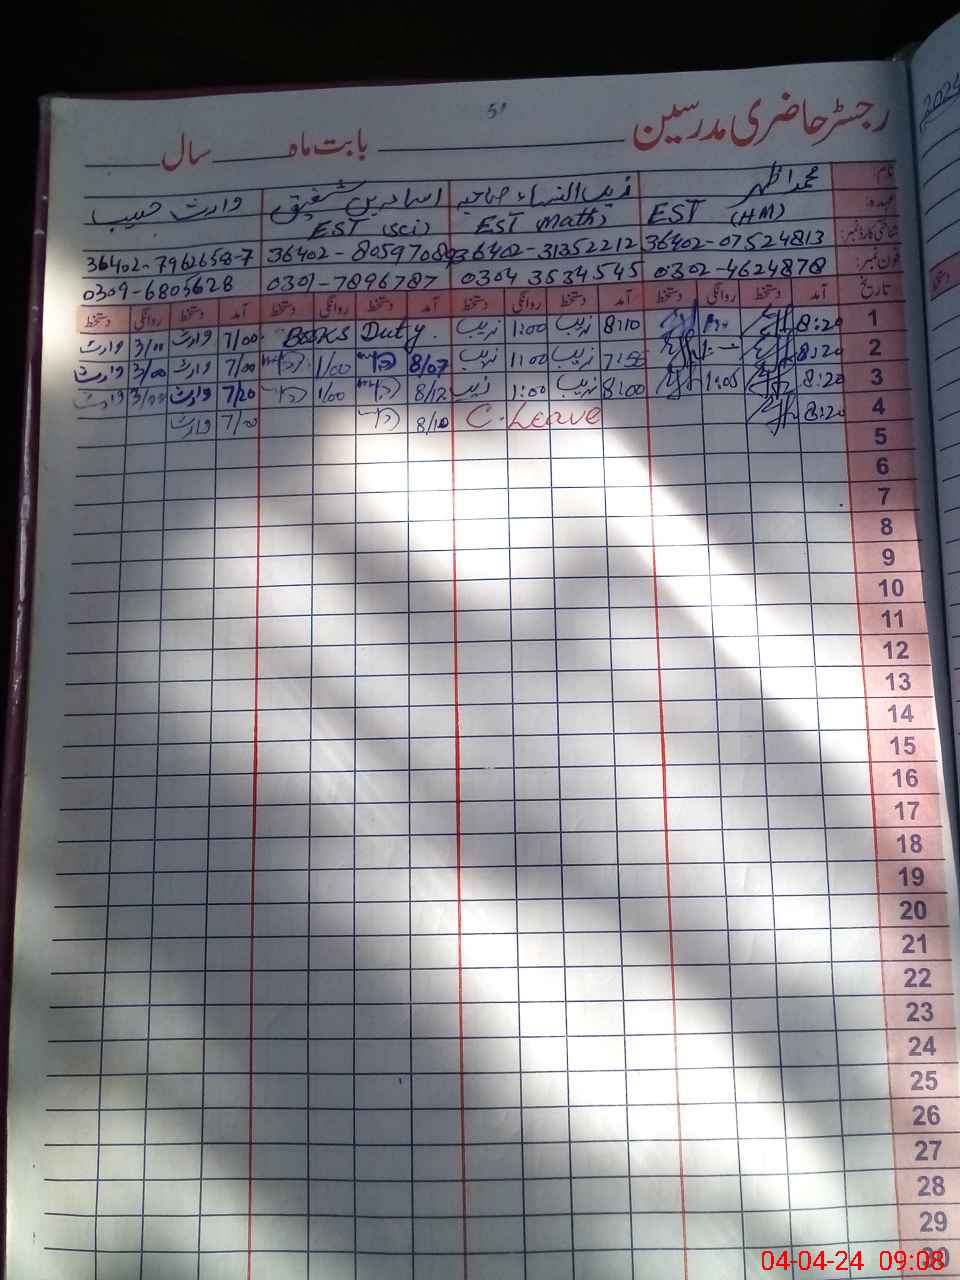 5
رجسٹر حاضری مدرسین ______ بابت ماہ ______ سال ______
نام: محمد اظہر زیب النساء صاحبہ شفیق وارث حبیب
عہدہ: EST (HM) EST (Math) EST (sci)
شناختی کارڈ نمبر: 36402-07524813 36402-31352212 36402-8059708 36402-7962658-7
فون نمبر: 0302-4624878 0304 3534545 0301-7896787 0309-6805628
تاریخ آمد دستخط روانگی دستخط آمد دستخط روانگی دستخط آمد دستخط روانگی دستخط آمد دستخط روانگی دستخط
1 8:20 8:10 زیب 1:00 زیب Books Duty. 7/00 وارث 3/00 وارث
2 8:20 7:55 زیب 1:00 زیب 8/07 1/00 7/00 وارث 3/00 وارث
3 8:20 1:05 8:00 زیب 1:00 زیب 8/12 1/00 7/20 وارث 3/00 وارث
4 8:20 C.Leave 8/10 7/00 وارث
5
6
7
8
9
10
11
12
13
14
15
16
17
18
19
20
21
22
23
24
25
26
27
28
29
30
04-04-24 09:08